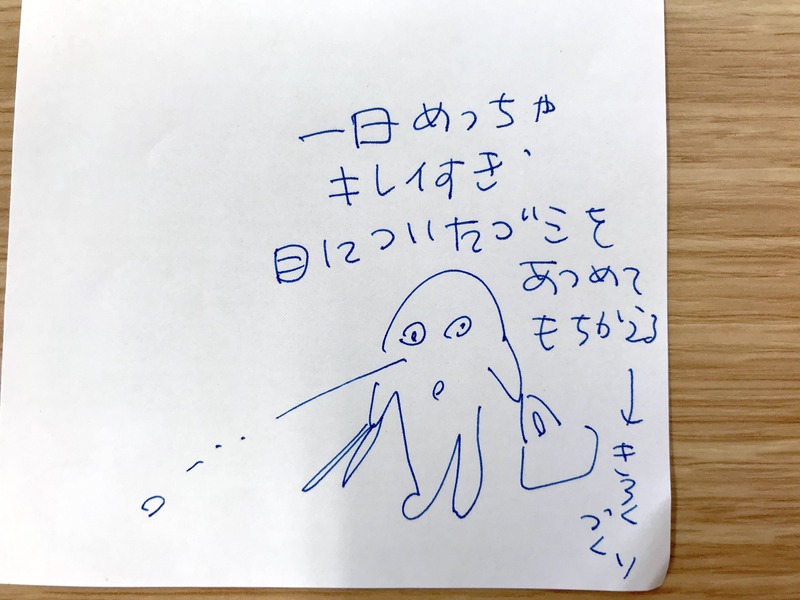 一日めっちゃ
キレイすぎ
目についたゴミを
あつめて
もちかえる
↓
きろく
づくり